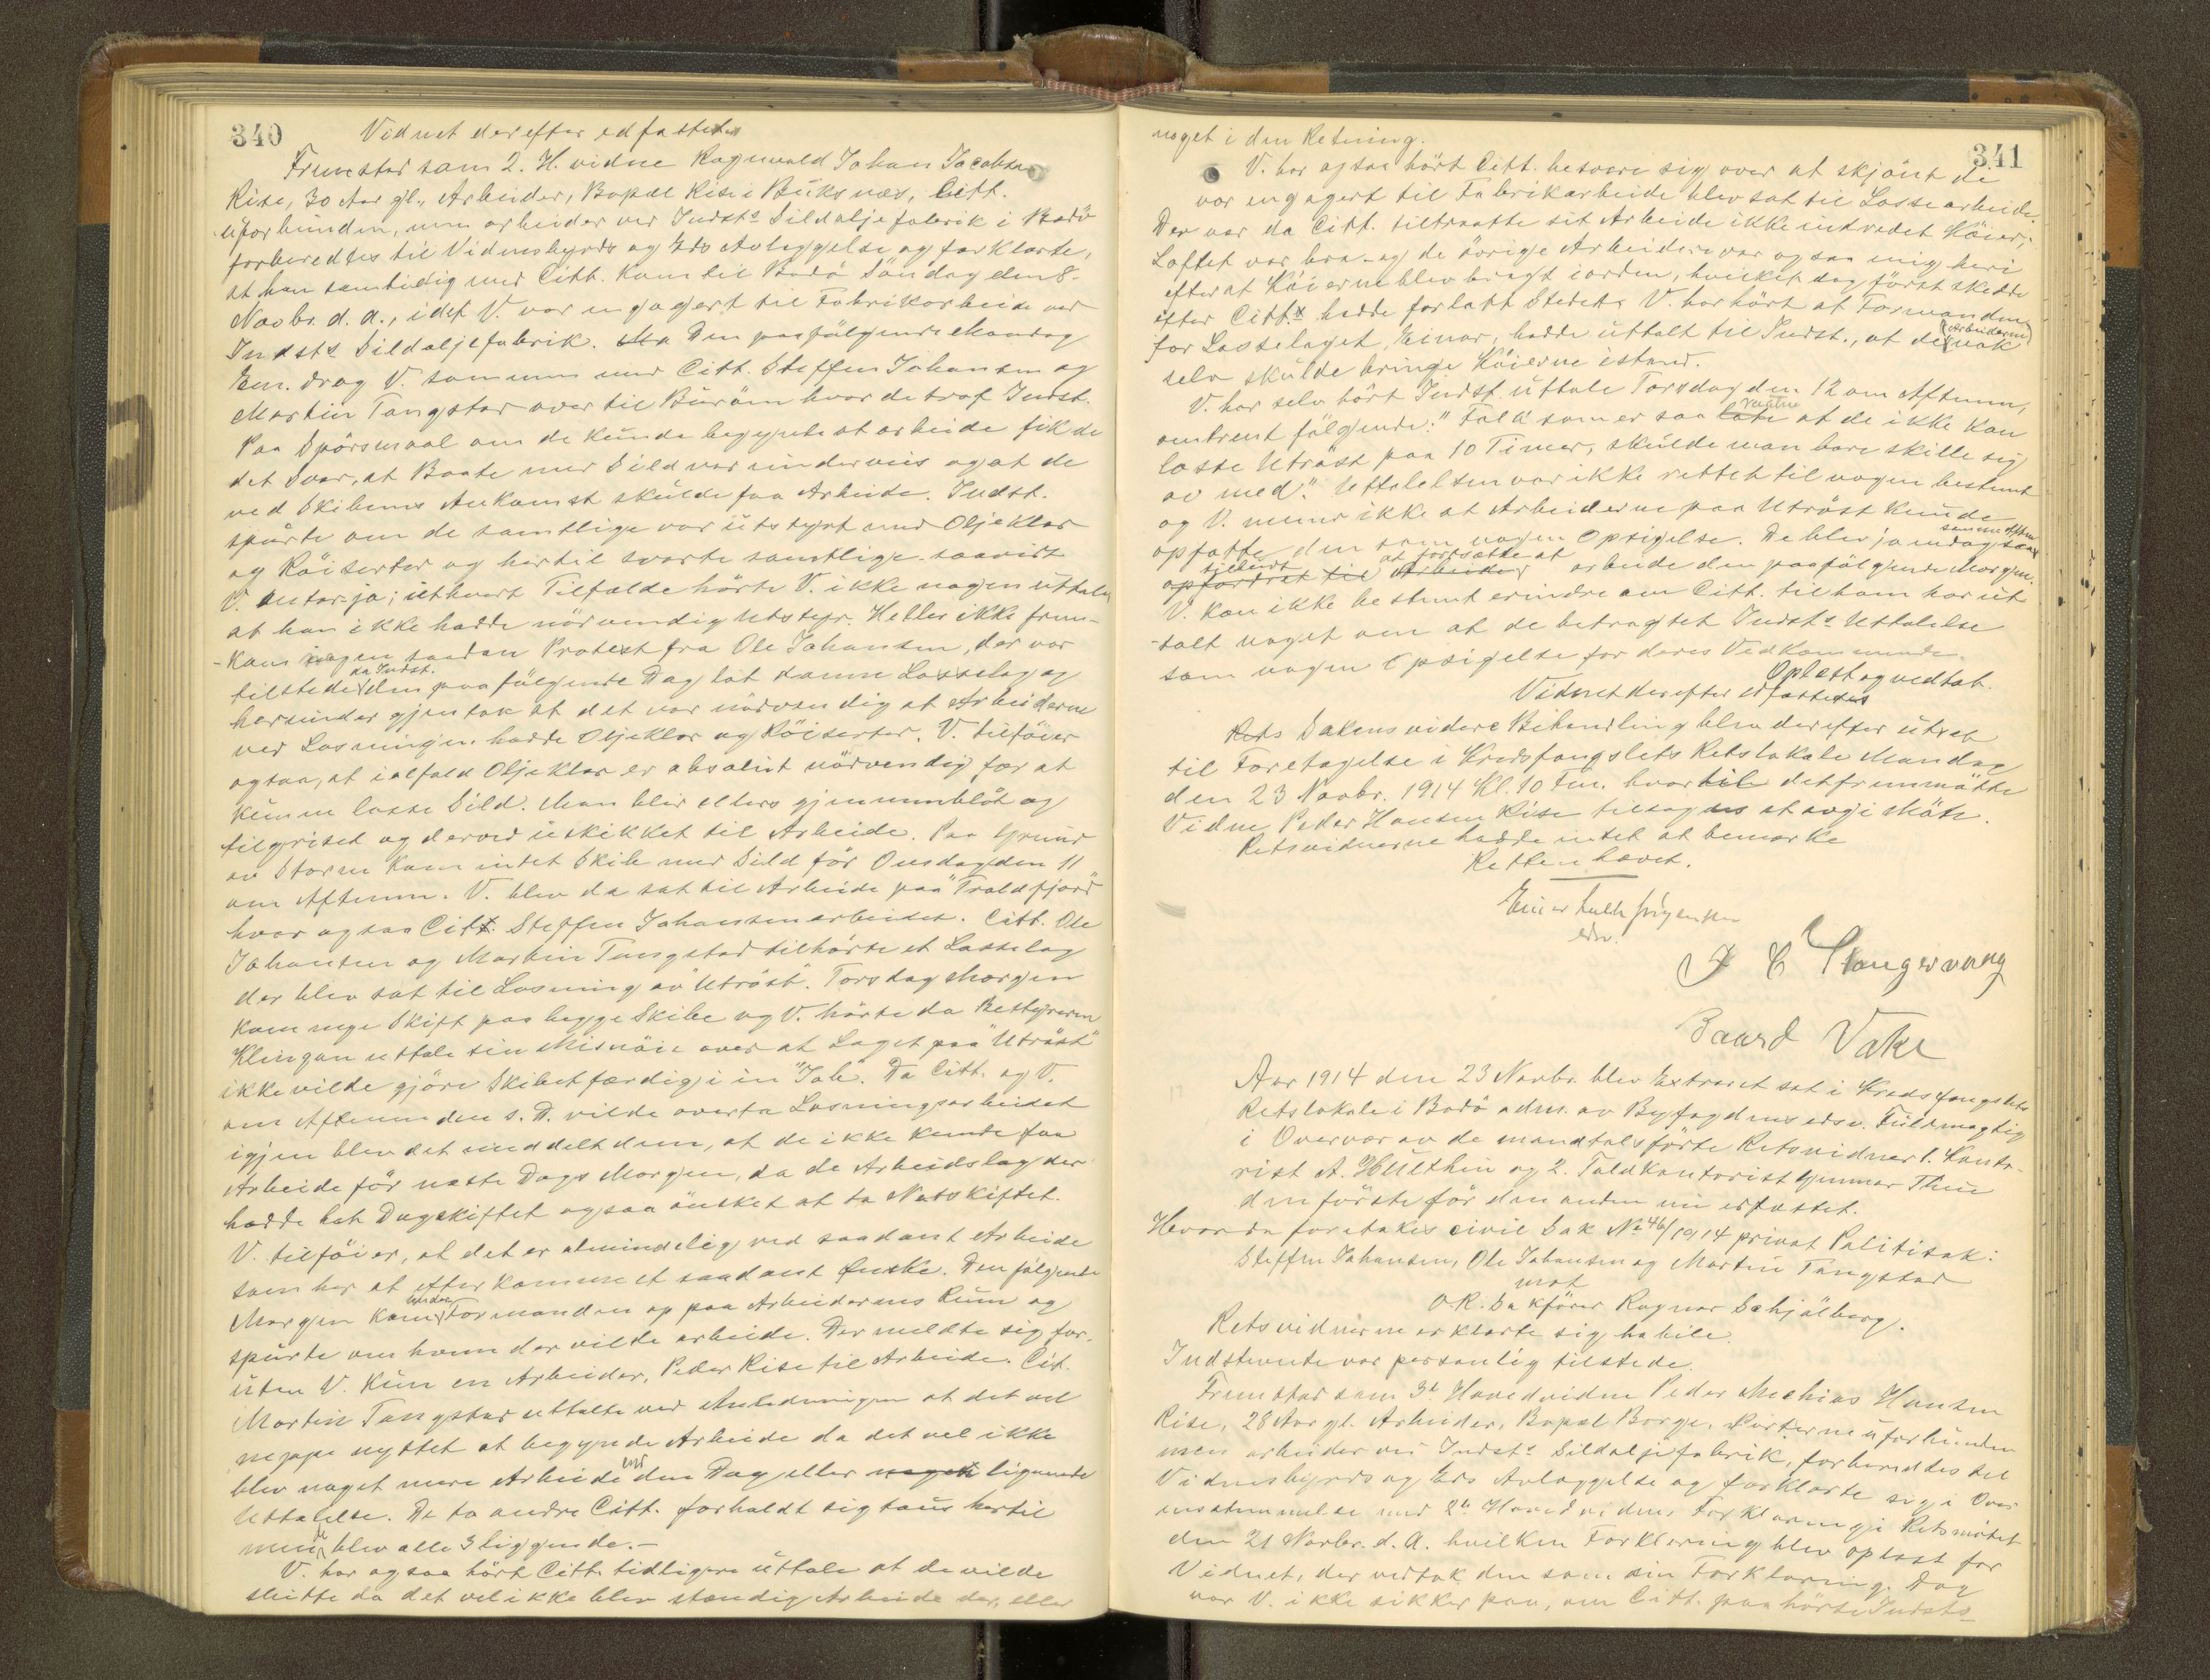 340
Vidnet derefter edfæstedes
Fremstod som 2. H. vidne Ragnvald Johan Jacobsen
Rise, 30 Aar gl., Arbeider, Bopæl Rise i Buksnæs, Citt.
uforbunden, men arbeider ved Indsts Sildoljefabrik i Bodö
forberedtes til Vidnesbyrds og Eds Avlæggelse og forklarte,
at han samtidig med Citt. kom til Bodö Söndag den 8.
Novbr. d. a., idet V. var engagert til Fabrikarbeide ved
Indsts Sildoljefabrik. Den paafölgende Mandag
Em. drog V. sammen med Citt. Steffen Johansen og
Martin Tangstad over til Buröen hvor de traf Indst.
Paa Spörsmaal om de kunde begynde at arbeide fik de
det Svar, at Baate med Sild var underveis og at de
ved Skibenes Ankomst skulde faa Arbeide. Indst.
spurte om de samtlige var utstyrt med Oljeklær
og Röiserter og hertil svarte samtlige saavidt
V. antar ja; ethvert Tilfælde hörte V. ikke nogen uttale
at han ikke hadde nödvendig Utstyr. Heller ikke frem-
-kom ingen saadan Protest fra Ole Johansen, der var
tilstede da Indst. den paafölgende Dag lot danne Losselag og
herunder gjentok at det var nödvendig at Arbeiderne
ved Losningen hadde Oljeklær og Röiserter. V. tilföier
ogsaa, at ialfald Oljeklær er absolut nödvendig for at
kunne losse Sild. Man blir ellers gjennemblöt og
tilgriset og derved uskikket til Arbeide. Paa Grund
av Storm kom intet Skib med Sild för Onsdag den 11
om Aftenen. V. blev da sat til Arbeide paa "Troldfjord"
hvor ogsaa Citt. Steffen Johansen arbeidet. Citt. Ole
Johansen og Martin Tangstad tilhörte et Losselag
der blev sat til Losning av "Utröst". Torsdag Morgen
kom nye Skift paa begge Skibe og V. hörte da Bestyreren
Klingan uttale sin Misnöie over at Laget paa "Utröst"
ikke vilde gjöre Skibet færdig i en "Job". Da Citt. og V.
om Aftenen den s. D. vilde overta Losningsarbeidet
igjen blev det meddelt dem, at de ikke kunde faa
Arbeide för næste Dags Morgen, da de Arbeidslag der
hadde hat Dagskiftet ogsaa önsket at ta Natskiftet.
V. tilföier, at det er almindelig ved saadant Arbeide
som her at efterkomme et saadant Önske. Den fölgende
Morgen kom Formanden op paa Arbeidernes Rum og
spurte om hvem der vilde arbeide. Der meldte sig for-
uten V. kun en Arbeider, Peder Rise til Arbeide. Cit.
Martin Tangstad uttalte ved Anledningen at det vel
neppe nyttet at begynde Arbeide da det vel ikke
blev noget mere Arbeide end den Dag eller noget lignende
Uttalelse. De to andre Citt. forholdt sig taus hertil
men de blev alle 3 liggende.-
V. har ogsaa hört Citt. tidligere uttale at de vilde
slutte da det vel ikke blev stændig Arbeide der, eller
341
noget i den Retning.
V. har ogsaa hört Citt. besvære sig over at skjönt de
var engagert til Fabrikarbeide blev sat til Lossearbeide.
Der var da Citt. tiltraatte sit Arbeide ikke indredet Köier;
Loftet var bra - og de övrige Arbeidere var ogsaa enig heri
efterat Köierne blev bragt iorden, hvilket dog först skedde
efter Citt. hadde forlatt Stedet. V. har hört at Formanden
for Losselaget, Einar, hadde uttalt til Indst., at de (Arbeiderne) nok
selv skulde bringe Köierne istand.
V. har selv hört Indst. uttale Torsdag den 12 om Aftenen,
omtrent fölgende: "Folk som er saa late at de ikke kan
losse Utröst paa 10 Timer, skulde man bare skille sig
av med." Uttalelsen var ikke rettet til nogen bestemt
og V. mener ikke at Arbeiderne paa Utröst kunde
opfatte den som nogen Opsigelse. De blev jo endog samme Aften
tilbudt at fortsætte at
opfordret til Arbeider arbeide den paafölgende Morgen.
V. kan ikke bestemt erindre om Citt. til ham har ut-
-talt noget om at de betragtet Indsts Uttalelse
som nogen Opsigelse for deres Vedkommende.
Oplæst og vedtat.
Vidnet derefter edfæstedes
Sakens videre Behandling blev derefter utsat
til Foretagelse i Kredsfængslets Retslokale Mandag
den 23 Novbr. 1914 Kl. 10 Fm. hvortil det fremmötte
Vidne Peder Hansen Rise tilsagdes at avgi Möte.
Retsvidnerne hadde intet at bemerke
Retten hævet.
edsv.
Baard Vake
Aar 1914 den 23 Novbr. blev Extraret sat i Kredsfængslets
Retslokale i Bodö adm. av Byfogdens edsv. Fuldmægtig
i Overvær av de mandtalsförte Retsvidner 1. Konto-
rist A. Hulthin og 2. Toldkontorist Gunnar Thue
den förste för den anden nu edfæstet.
Hvorda foretokes civil Sak No 46/1914 privat Politisak:
Steffen Johansen, Ole Johansen og Martin Tangstad
mot
O.R. Sakförer Ragnar Schjölberg.
Retsvidnerne erklærte sig habile.
Indstevnte var personlig tilstede.
Fremstod som 3de Hovedvidne Peder Mechias Hansen
Rise, 28 Aar gl. Arbeider, Bopæl Borge, Parterne uforbunden
men arbeider ved Indsts Sildoljefabrik, forberedtes til
Vidnesbyrds og Eds Avlæggelse og forklarte sig i Over
ensstemmelse med 2det Hovedvidnes Forklaring i Retsmötet
den 21 Novbr. d. A. hvilken Forklaring blev oplæst for
Vidnet, der vedtok den som sin Forklaring. Dog
var V. ikke sikker paa, om Citt. paahörte Indsts